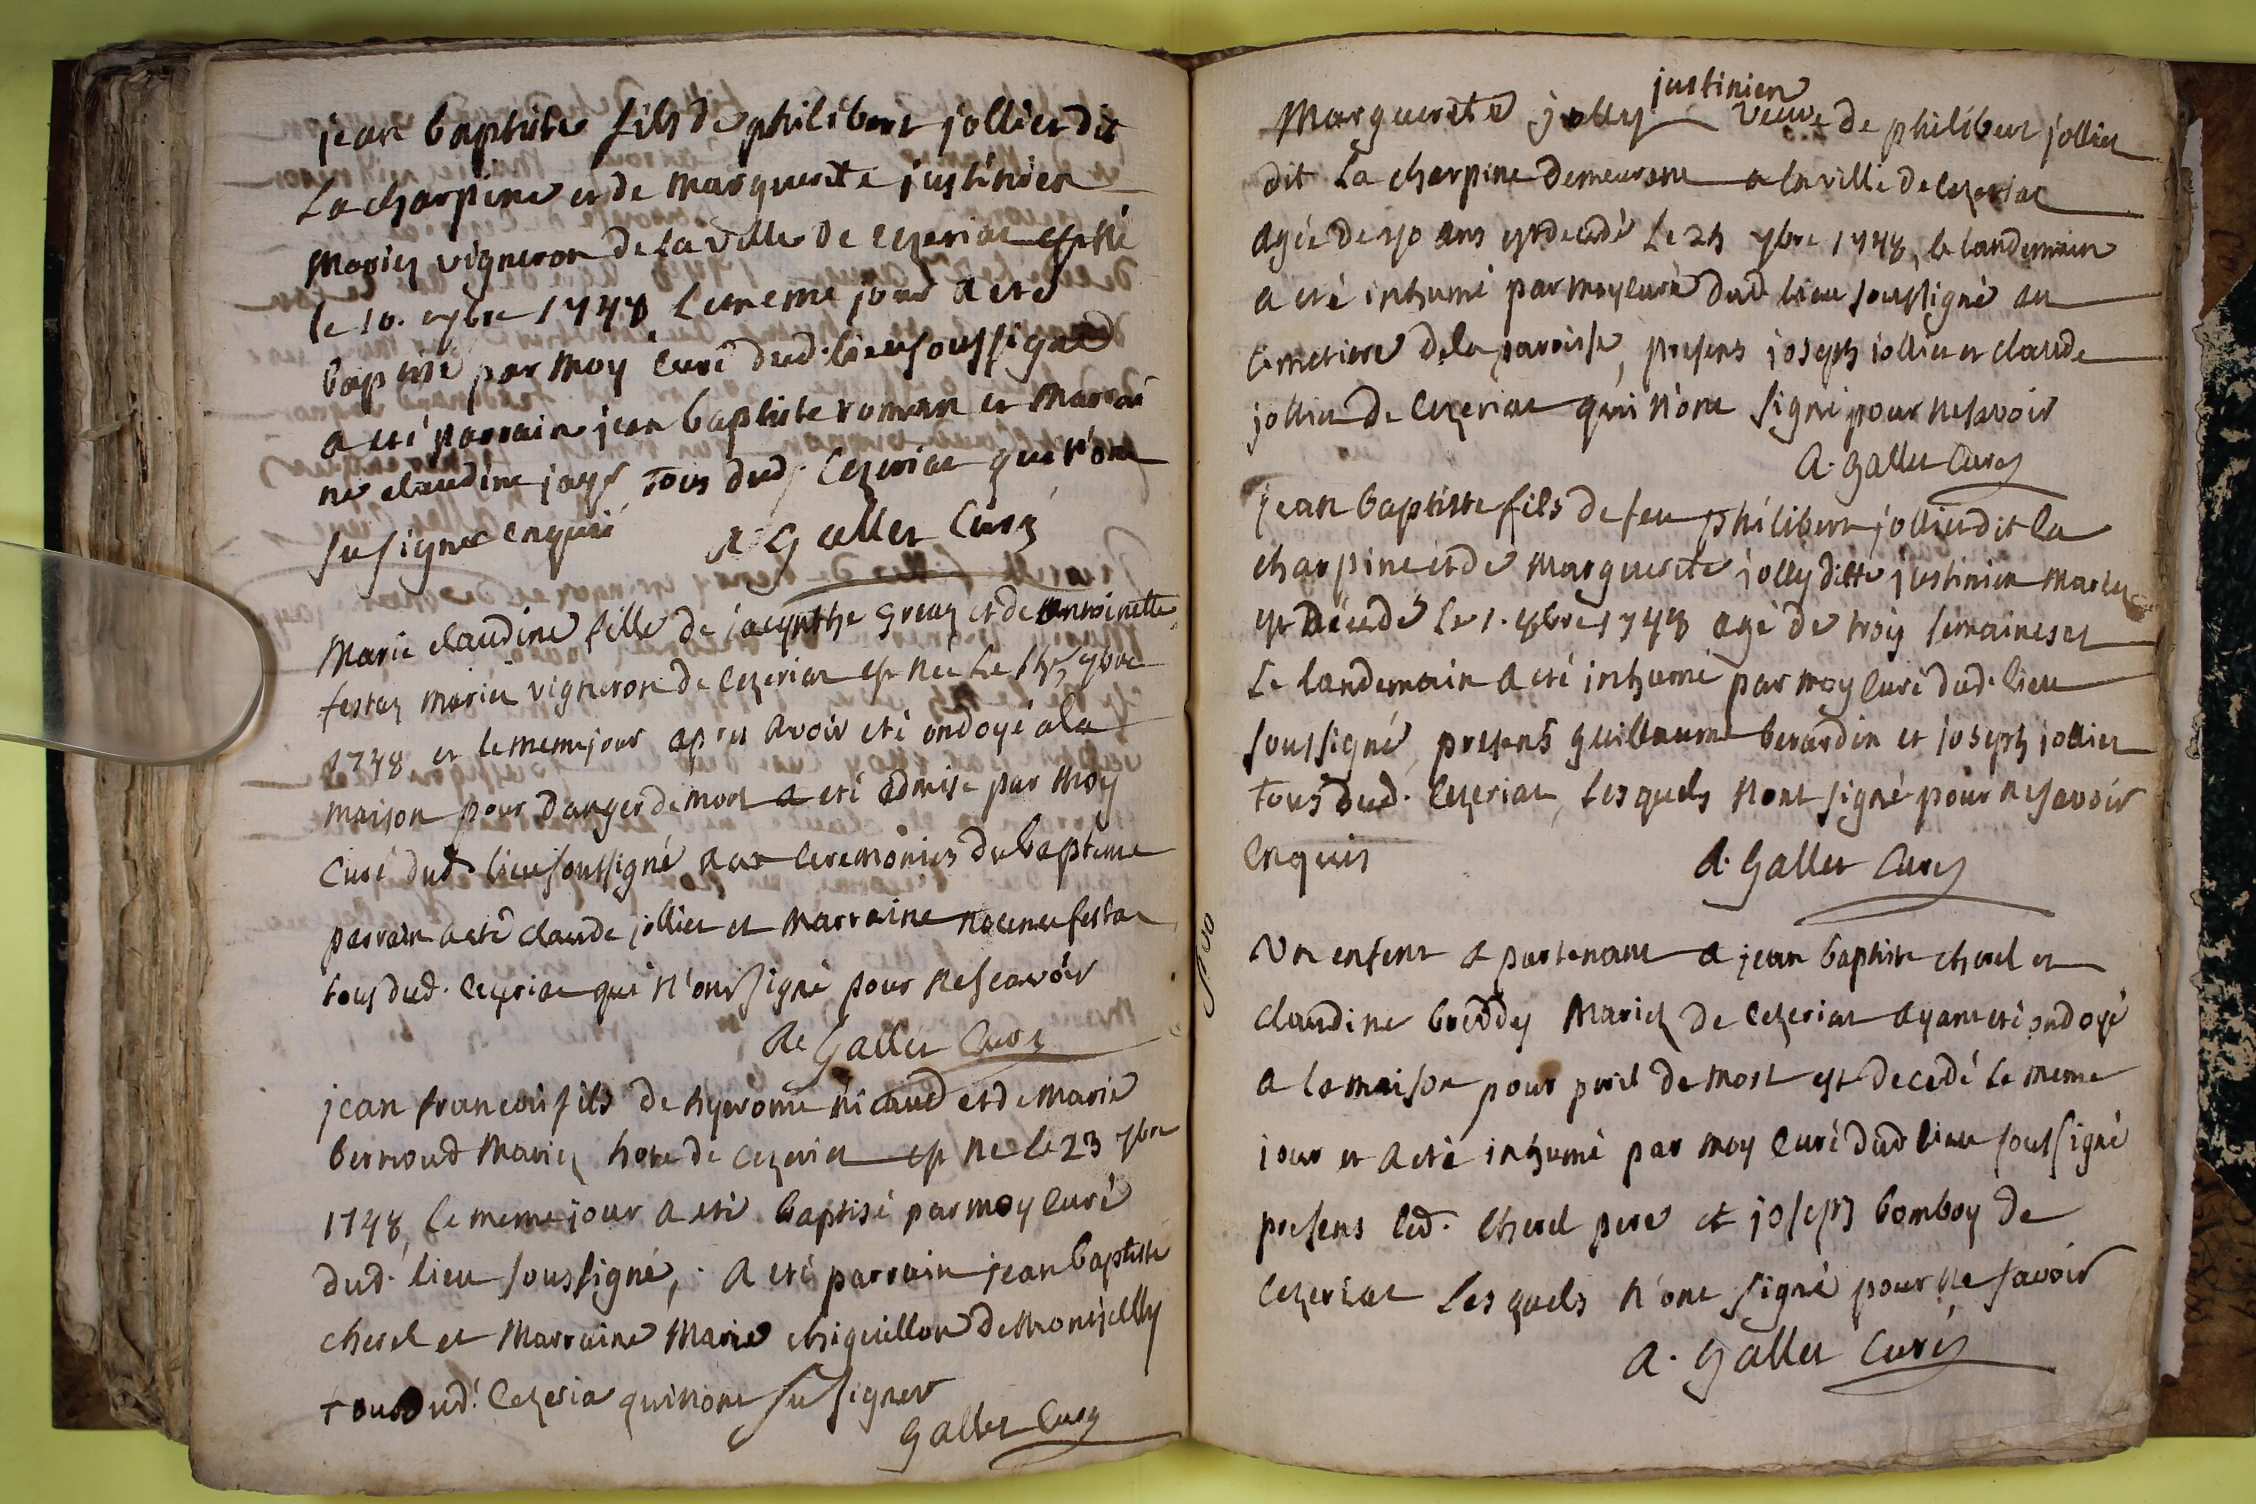 jean baptiste fils de philibert jollier dit
La charpine et de marguerite justinien
Mariez vigneron de la ville de Cezeriat est né
le 10. 7bre 1748 Le meme jour a eté
baptisé par moy Curé dud. lieu soussigné
a eté parrain jean baptiste roman et marrai
ne claudine jays tous dud. Cezeriat qui n'ont
su signer enquis A Gallet Curé
Marie claudine fille de jacynthe greuz et de antoinette
festaz mariez vigneron de Cezeriat est née Le 15 7bre
1748 et le meme jour apres avoir eté ondoyé a la
maison pour danger de mort a eté admise par moy
Curé dud. lieu soussigné aux Ceremonies du bapteme
parrain a eté claude jollier et marraine festaz
tous dud. Cezeriat qui n'ont signé pour ne scavoir
A Gallet Curé
jean francois fils de hyerome nicaud et de marie
bernoud Mariez hote de Cezeriat est né le 23 7bre
1748, Le meme jour a eté baptisé par moy Curé
dud. lieu soussigné, a eté parrain jean baptiste
cherel et Marraine Marie chiquillon de montjully
tous dud. Cezeria qui n'ont su signer
Gallet Curé
justinien
Marguerite jolly veuve de philibert jollier
dit La charpine demeurant a la ville de Cezeriat
agée de 40 ans est decedé Le 25 7bre 1748, le landemain
a eté inhumé par moy Curé dud. lieu soussigné au
Cimetiere de la paroisse, presens joseph jollier et claude
jollier de Cezeriat qui n'ont signé pour ne savoir
A. Gallet Curé
jean baptiste fils de feu philibert jollier dit la
charpine et de Marguerite jolly ditte justinien Mariez
est décedé Le 1. 8bre 1748 agé de trois semaines et
Le landemain a eté inhumé par moy Curé dud. lieu
soussigné, presens guillaume berardin et joseph jollier
tous dud. Cezeriat, Lesquels n'ont signé pour ne savoir
Enquis A. Gallet Curé
Un enfant apartenant a jean baptiste cherel et
claudine breddy Mariez de Cezeriat ayant eté ondoyé
a la maison pour peril de mort est decedé le meme
jour et a eté inhumé par moy Curé dud lieu soussigné
presens Led. Cherel pere et joseph bomboy de
Cezeriat Lesquels n'ont signé pour ne savoir
A. Gallet Curé